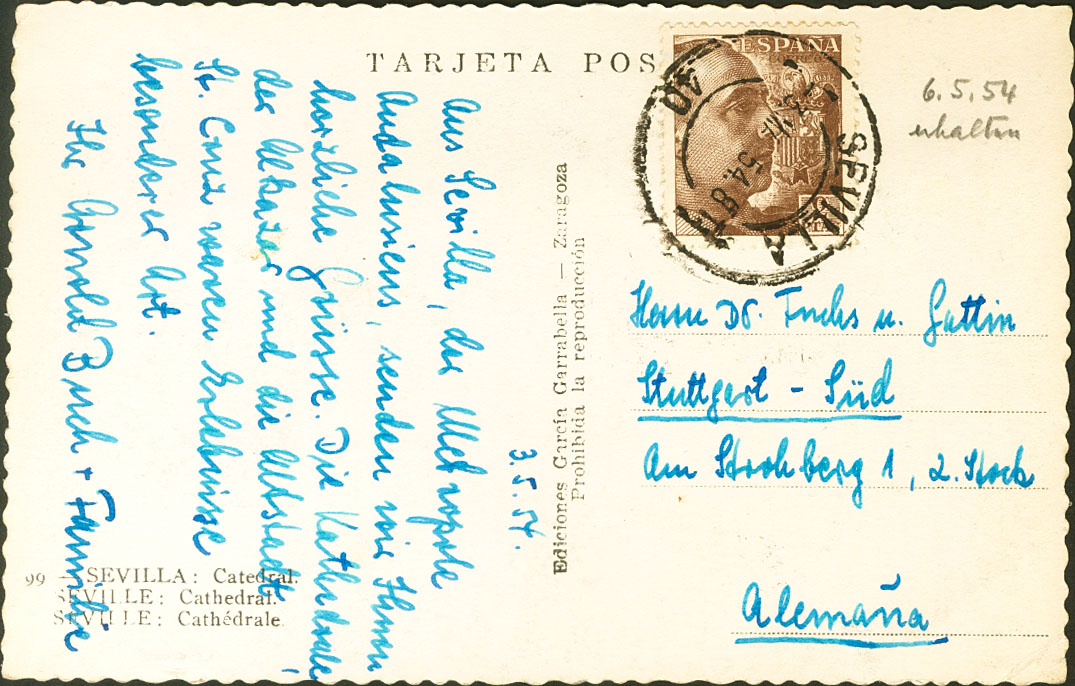 TARJETA POS
ESPAÑA
SEVILLA
6.5.54
erhalten
3.5.54.
Aus Sevilla, der Metropole
Andalusiens, senden wir Ihnen
herzliche Grüsse. Die Kathedrale,
der Alkazar und die Altstadt
St. Cruz waren Erlebnisse
besonderer Art.
Ihr Arnold Busch + Familie
Ediciones García Garrabella — Zaragoza
Prohibida la reproducción
Herrn Dr. Fuchs u. Gattin
Stuttgart - Süd
Am Strohberg 1, 2. Stock
Alemaña
99 — SEVILLA: Catedral.
SEVILLE: Cathedral.
SEVILLE: Cathédrale.